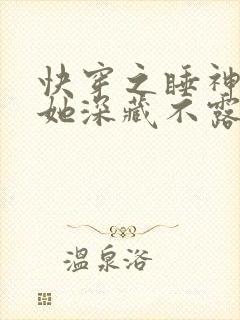 快穿之睡神
她深藏不露
温泉洛